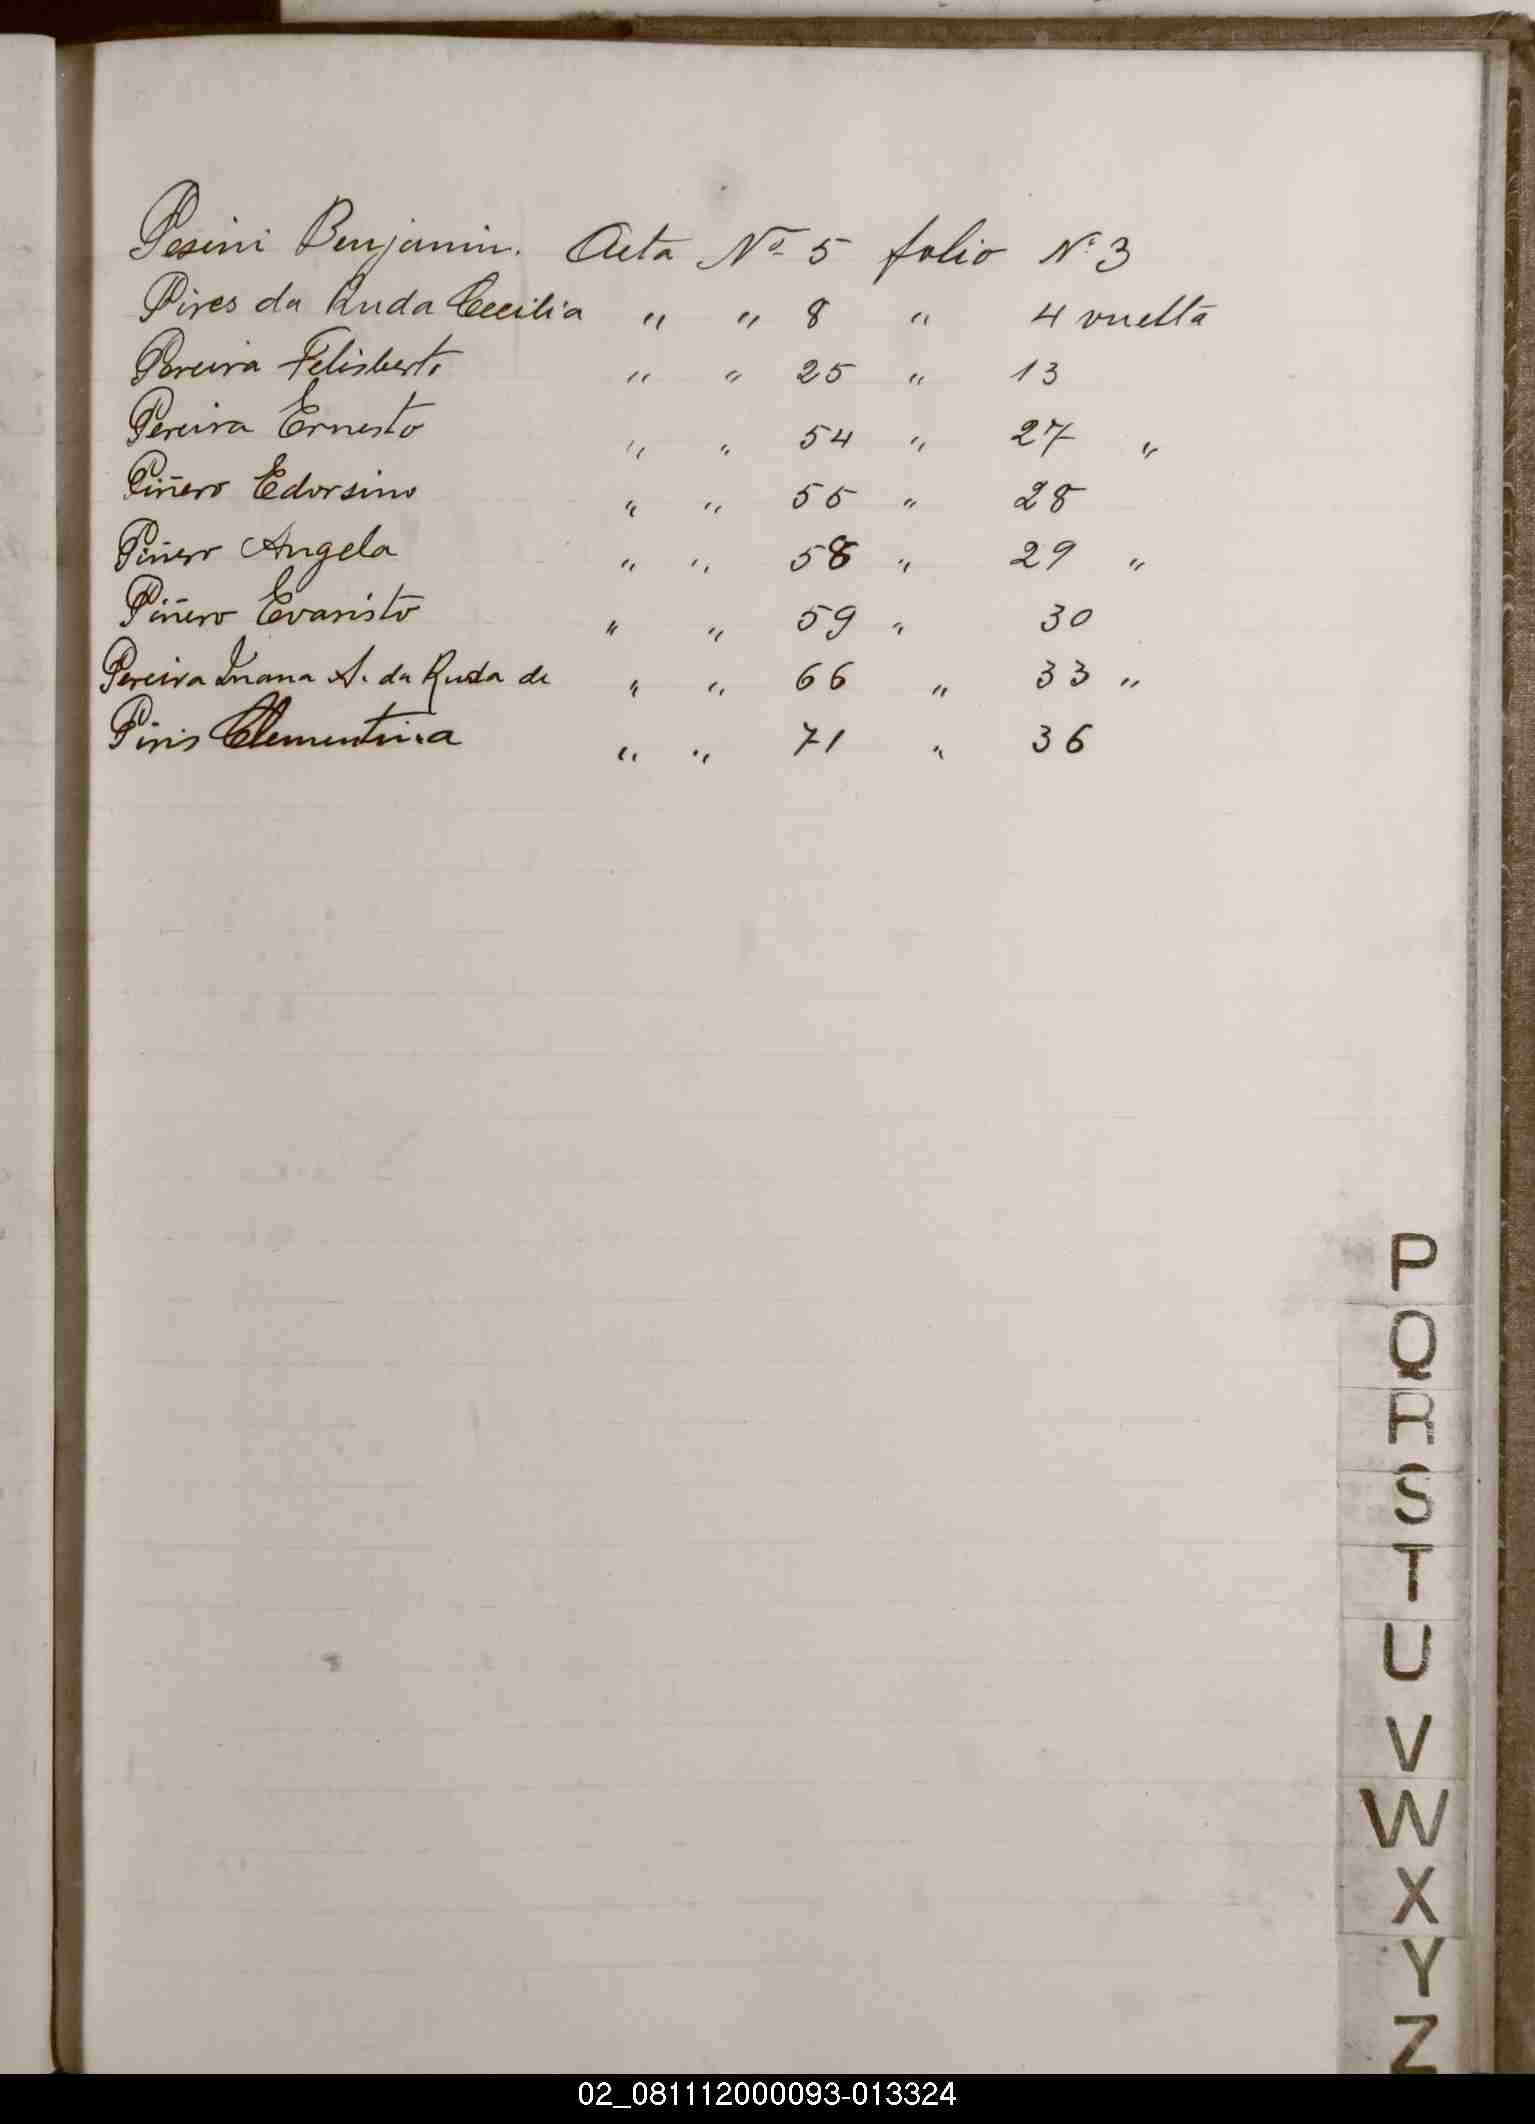 Pesini Benjamin. Acta Nº 5 folio Nº 3
Pires da Ruda Cecilia " " 8 " 4 vuelta
Pereira Felisberto " " 25 " 13
Pereira Ernesto " " 54 " 27 "
Piñero Edorsino " " 55 " 28
Piñero Angela " " 58 " 29 "
Piñero Evaristo " " 59 " 30
Pereira Juana A. da Ruda de " " 66 " 33 "
Piris Clementina " " 71 " 36
P
Q
R
S
T
U
V
W
X
Y
Z
02_081112000093-013324